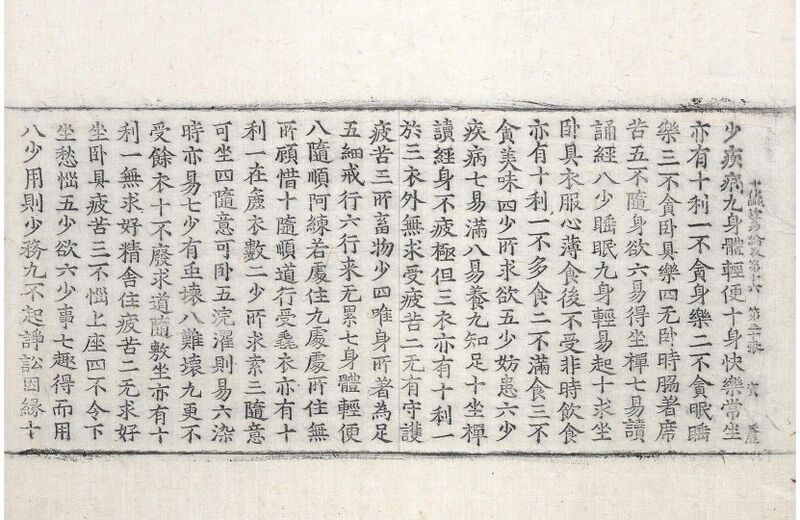 十住毗婆沙論卷第十六 第二十張 資
少疾病九身體輕便十身快樂常坐
亦有十利一不貪身樂二不貪眠睡
樂三不貪卧具樂四无卧時脇著席
苦五不隨身欲六易得坐禪七易讀
誦經八少睡眠九身輕易起十求坐
卧具衣服心薄食後不受非時飲食
亦有十利一不多食二不滿食三不
貪美味四少所求欲五少妨患六少
疾病七易滿八易養九知足十坐禪
讀經身不疲極但三衣亦有十利一
於三衣外無求受疲苦二无有守護
疲苦三所畜物少四唯身所著為足
五細戒行六行来无累七身體輕便
八隨順阿練若處住九處處所住無
所顧惜十隨順道行受毳衣亦有十
利一在麁衣數二少所求索三隨意
可坐四隨意可卧五浣濯則易六染
時亦易七少有虫壞八難壞九更不
受餘衣十不廢求道隨敷坐亦有十
利一無求好精舍住疲苦二无求好
坐卧具疲苦三不惱上座四不令下
坐愁惱五少欲六少事七趣得而用
八少用則少務九不起諍訟因緣十